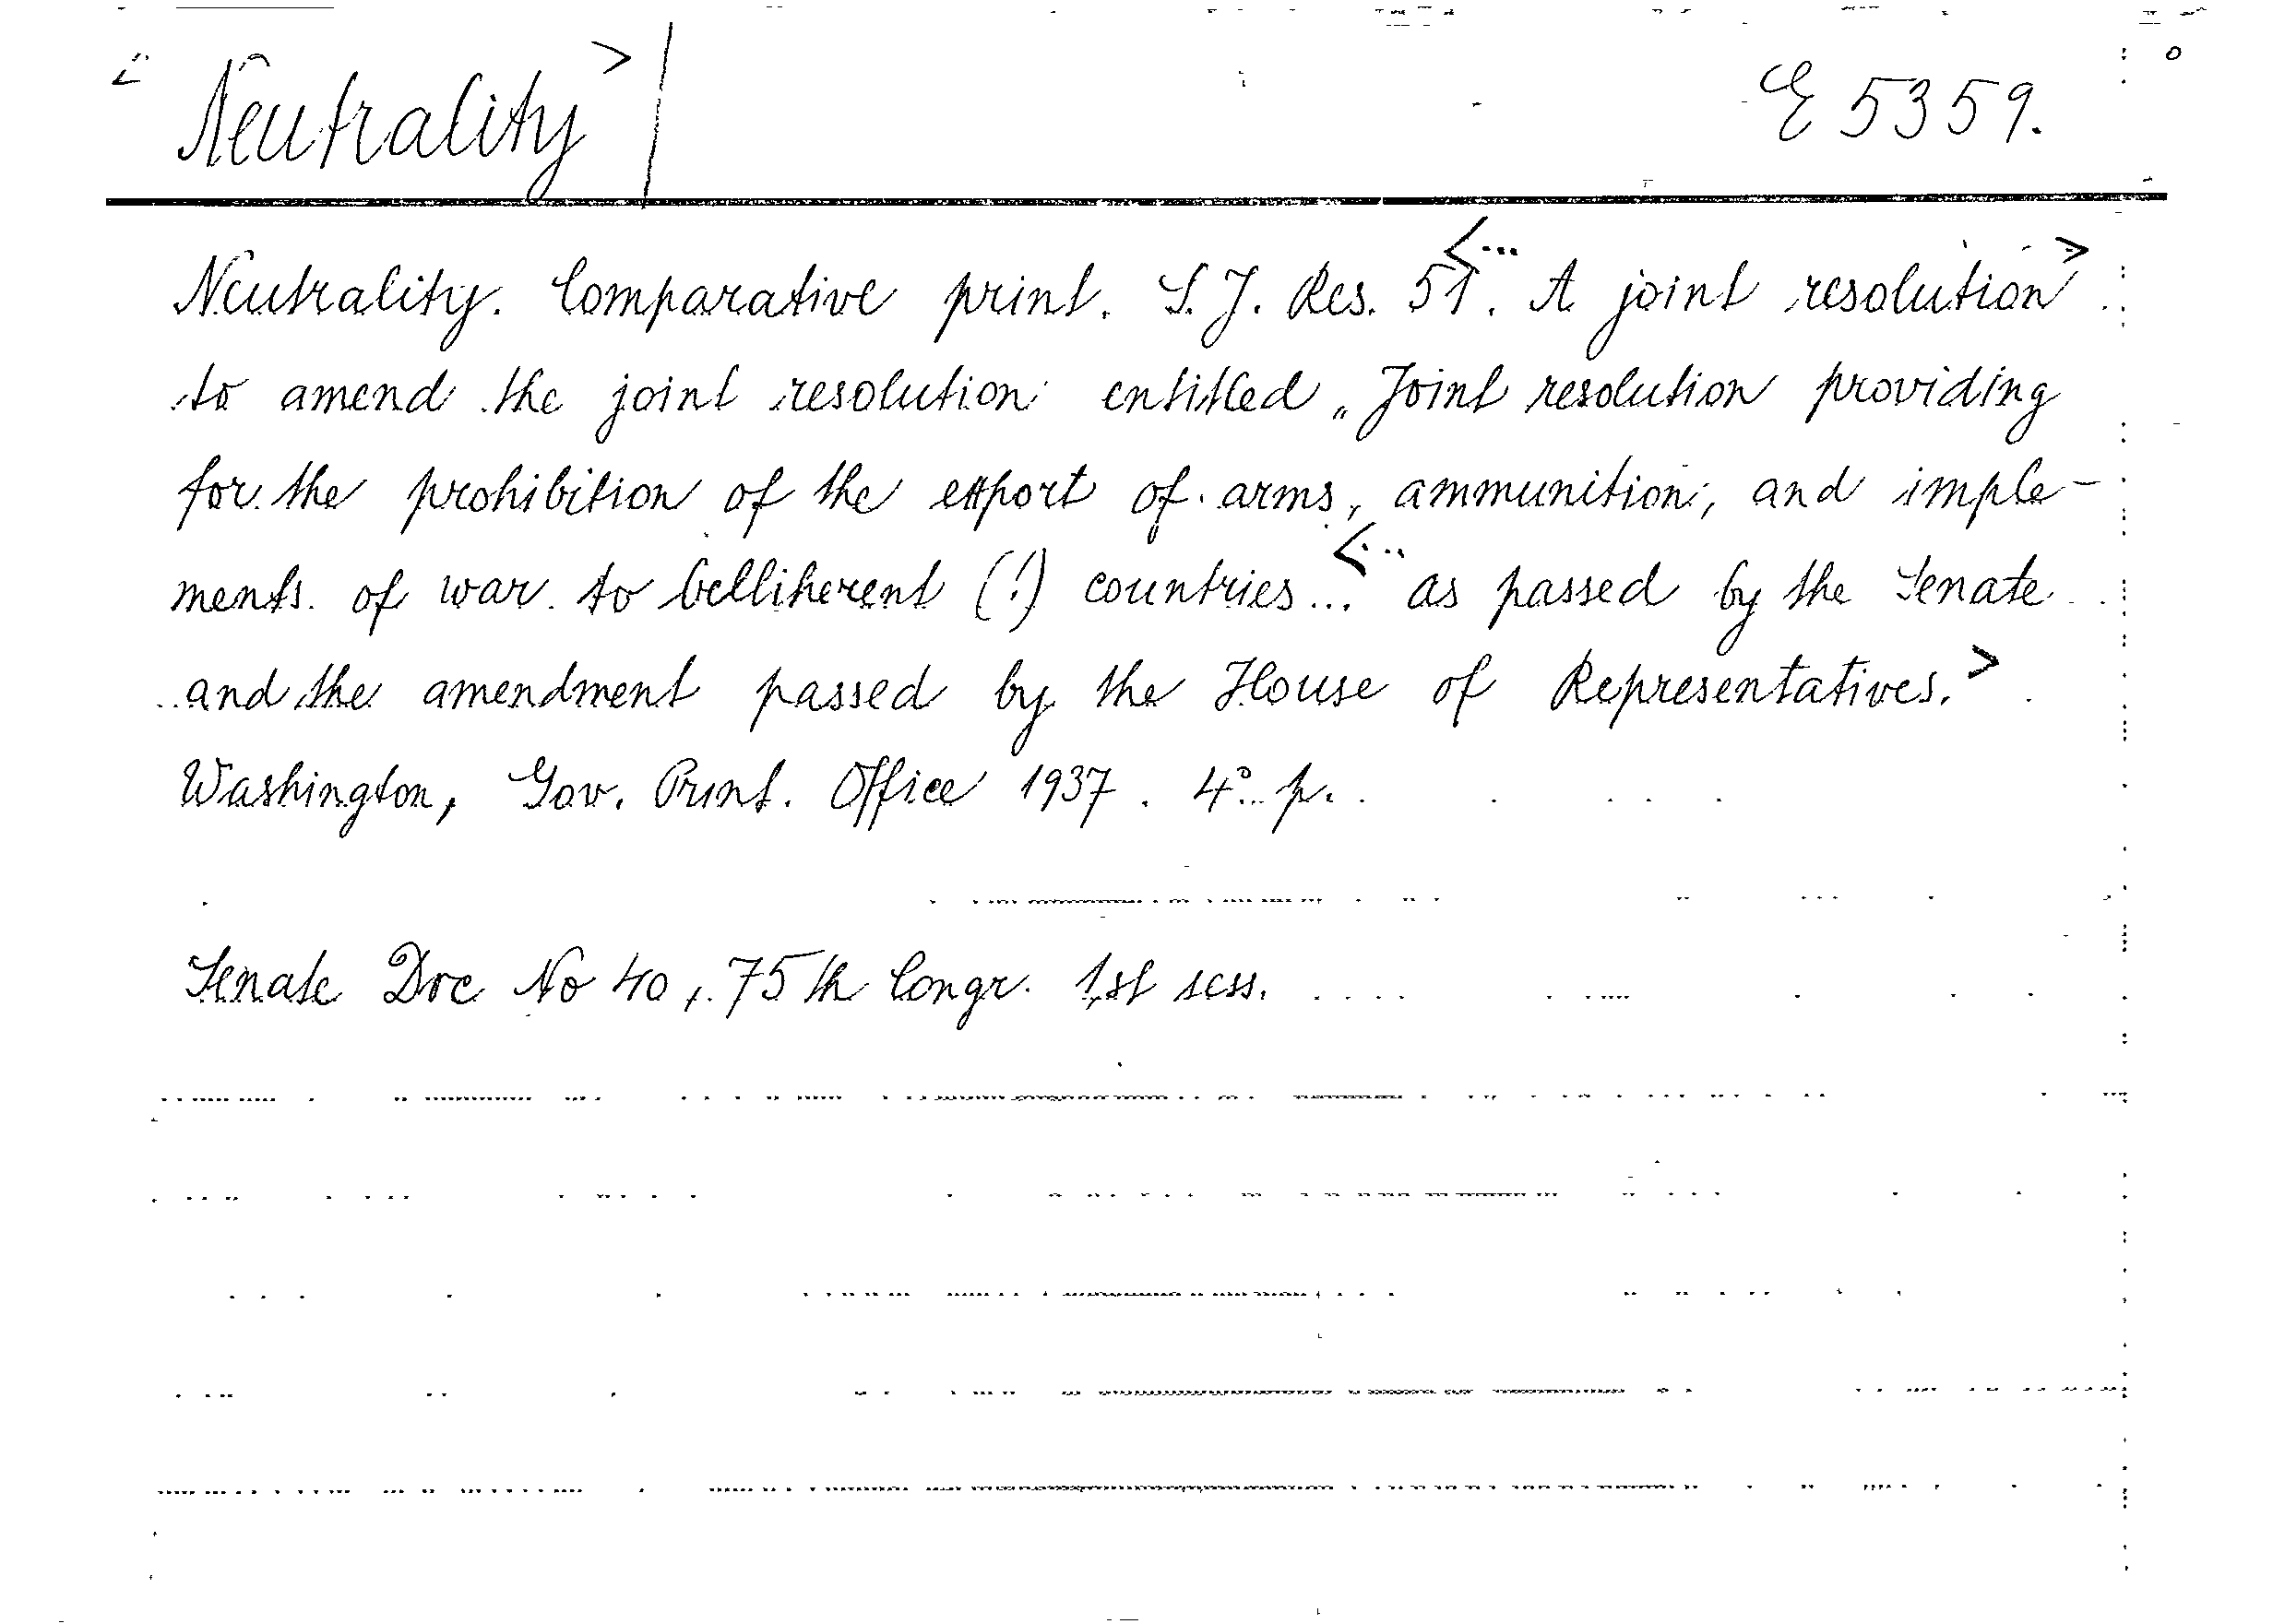 < Neutrality > | E 5359.
Neutrality. Comparative print. S. J. Res. 51. <... A joint resolution >
to amend the joint resolution entitled „Joint resolution providing
for the prohibition of the export of arms, ammunition, and imple-
ments of war to belliherent (!) countries... <... as passed by the Senate
and the amendment passed by the House of Representatives. >
Washington, Gov. Print. Office 1937. 4° p.
Senate Doc No 40, 75th Congr. 1st sess.